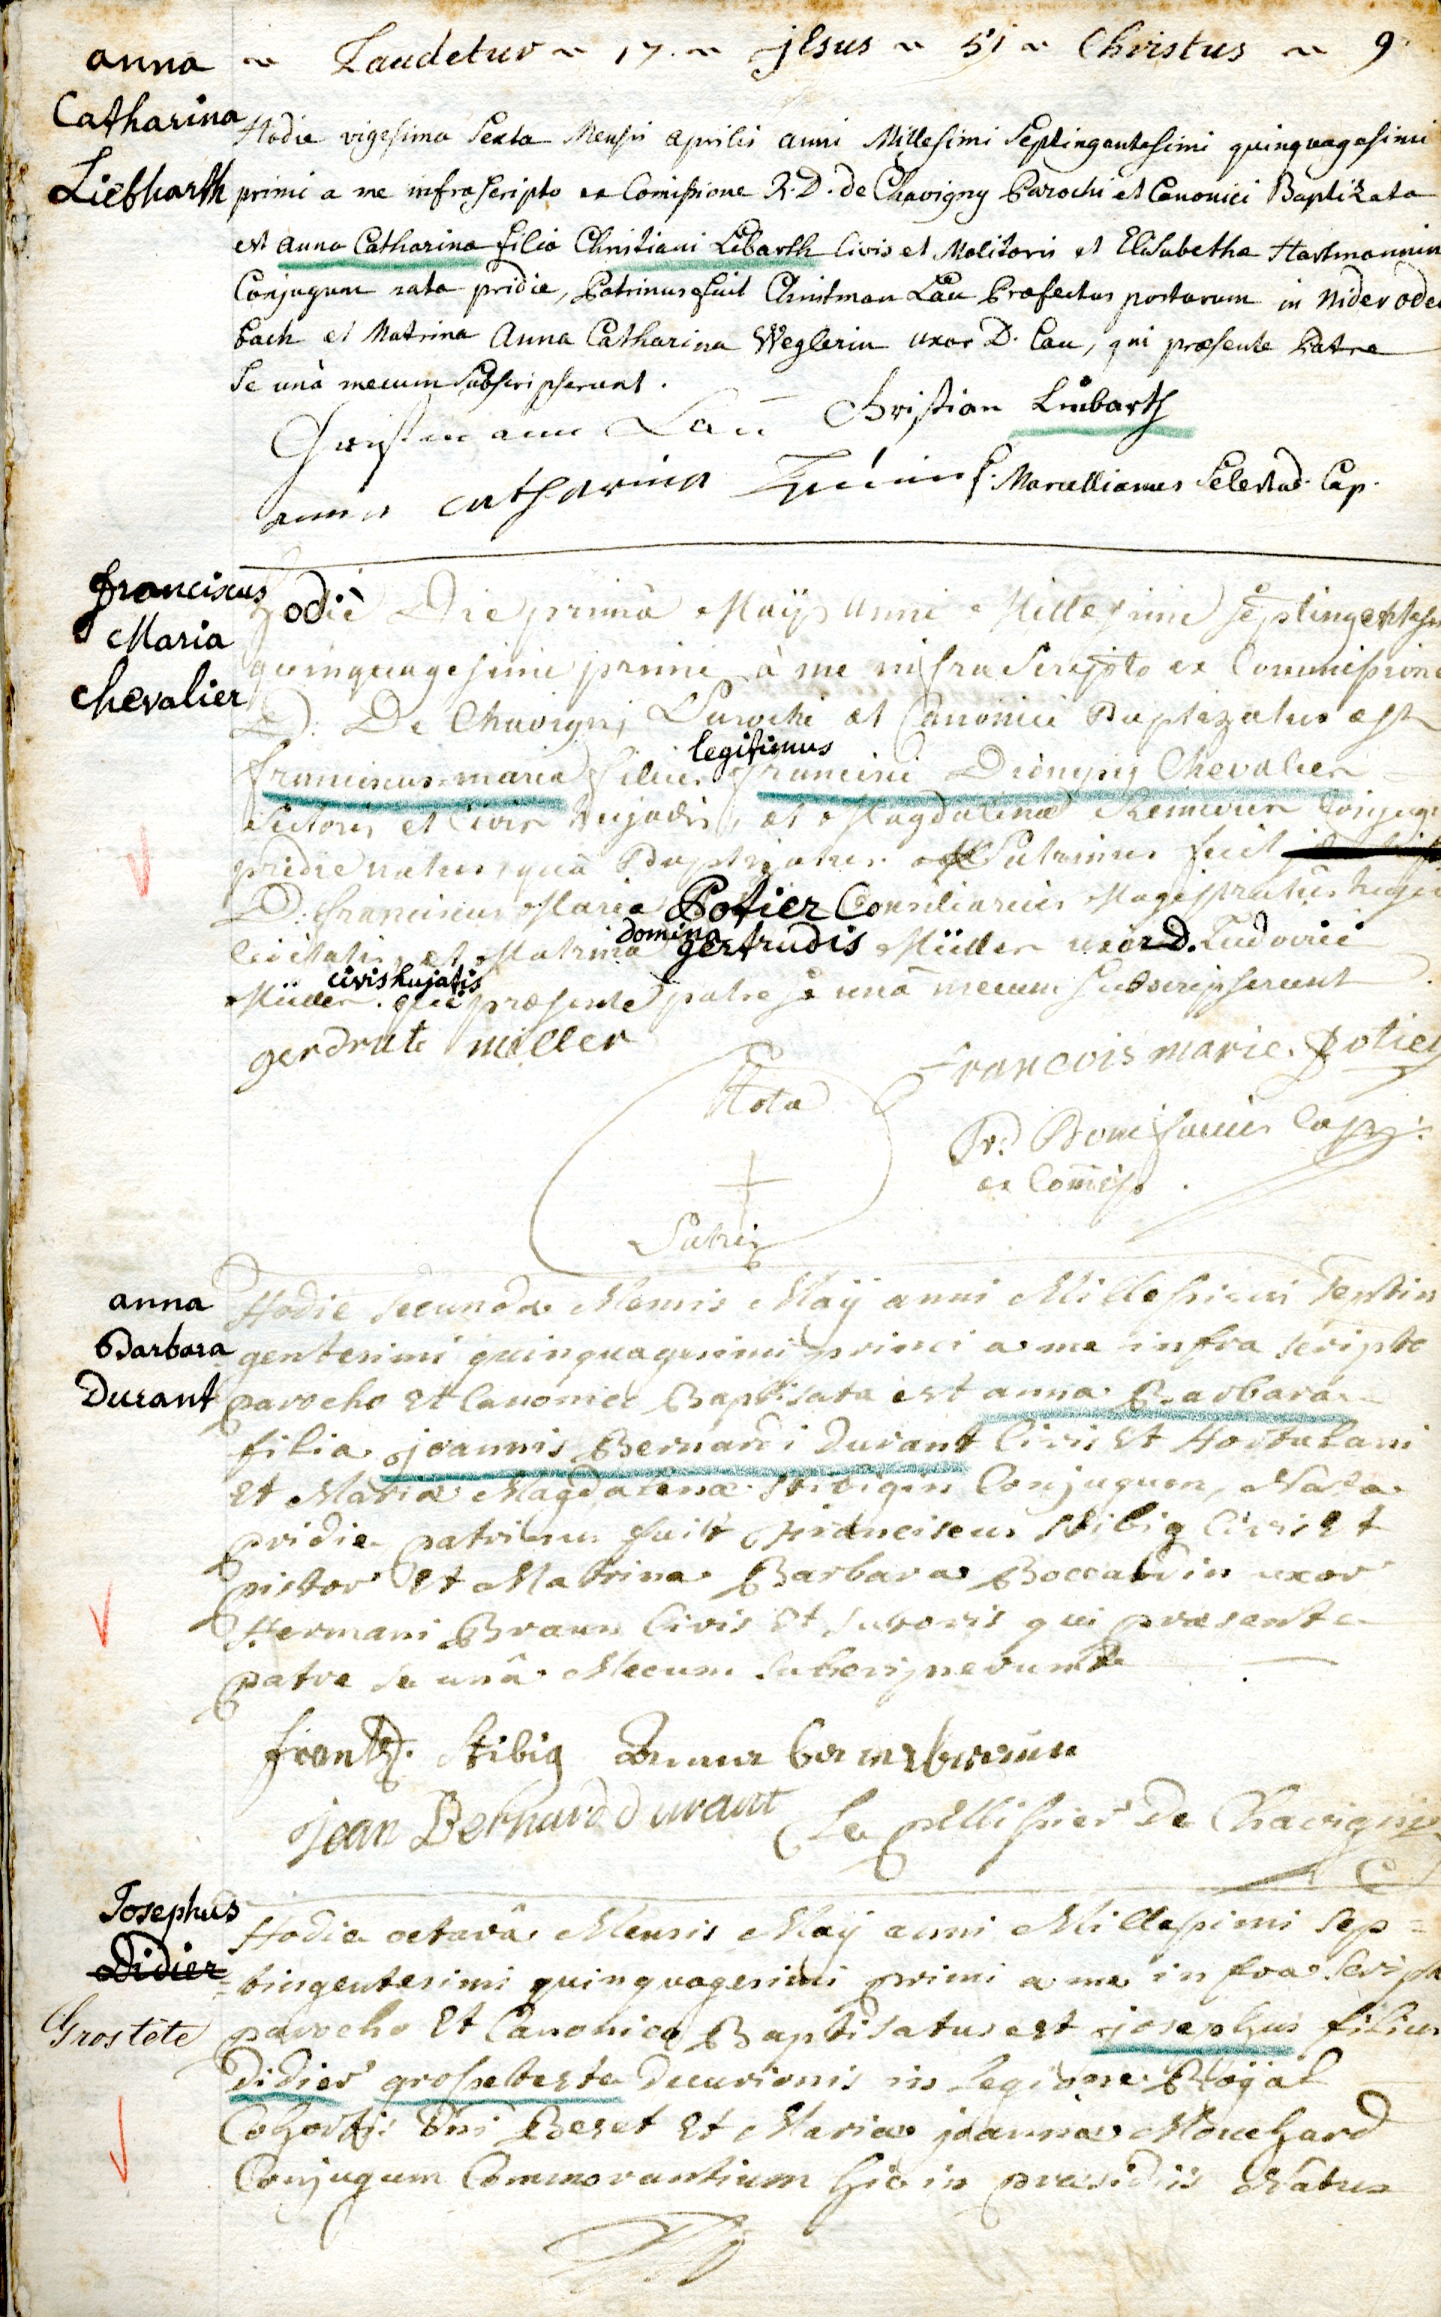 Laudetur ~ 17 ~ jesus ~ 51 ~ Christus ~ 9
anna
Catharina
Liebharth
Hodie vigesima Sexta Mensis aprilis anni Millesimi Septingentesimi quinquagesimi
primi a me infrascripto ex Comissione R. D. de Chavigny Parochi et Canonici Baptizata
est anna Catharina filia Christiani Libarth Civis et Molitoris et Elisabetha Hartmannin
Conjugum nata pridie, Patrinus fuit Christman Lau Præfectus portarum in Niderode
bach et Matrina Anna Catharina Weglerin uxor D. Lau, qui præsente Patre
se unà mecum subscripserunt.
Christian
anna catharina
f. Marcellianus Selestad. Cap.
franciscus
Maria
Chevalier
hodie Die primâ Maÿ anni Millesimi septingentesi
quinquagesimi primi à me infra Scripto ex Commissione
D. De Chavignÿ Parochi et Canonici Baptizatus est
legitimus
franciscus maria filius francisci Dionysij Chevalier
Sutoris et Civis hujatis, et Magdalena Conjug
pridie natus, quà Baptizatus est Patrinus fuit
D. franciscus Maria Potier Consiliarius Magistratus hujus
domina
Civitatis, et Matrina gertrudis Müller uxor D. Ludovici
civis hujatis
Müller. qui præsente patre se unà mecum subscripserunt
gerdrute miller
francois marie potier
Nota
+
Patris
Pr. Bonifacius Cap.
ex Comiss.
anna
Barbara
Durant
Hodie secunda Mensis Maÿ anni Millesimi Septin
gentesimi quinquagesimi primi a me infra scripto
parocho et Canonico Baptisata est anna Barbara
filia joannis Bernardi Durant Civis et Hortulani
et Mariæ Magdalenæ Stibigin Conjugum, Nata
pridie patrinus fuit franciscus Stibig Civis et
pistor et Matrina Barbara Boccardin uxor
Hermani Braun Civis et sutoris qui præsente
patre se unâ Mecum subsignerunt
frantz. Stibig
jean Bernard durant Le pellissier De Chavigny
Josephus
Didier
Grostete
Hodie octavâ Mensis Maÿ anni Millesimi Sep=
=tingentesimi quinquagesimi primi a me infra Scripto
parocho et Canonico Baptisatus est josephus filius
didier grossetteste Decurionis in Legione Roÿal
Cohortis Dni Beret et Mariæ joannæ Mouchard
Conjugum Commorantium hic in præsidiis Natus